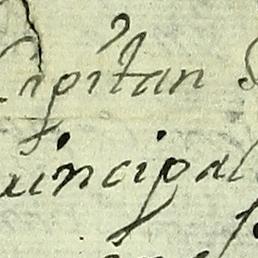 Capitan
principal